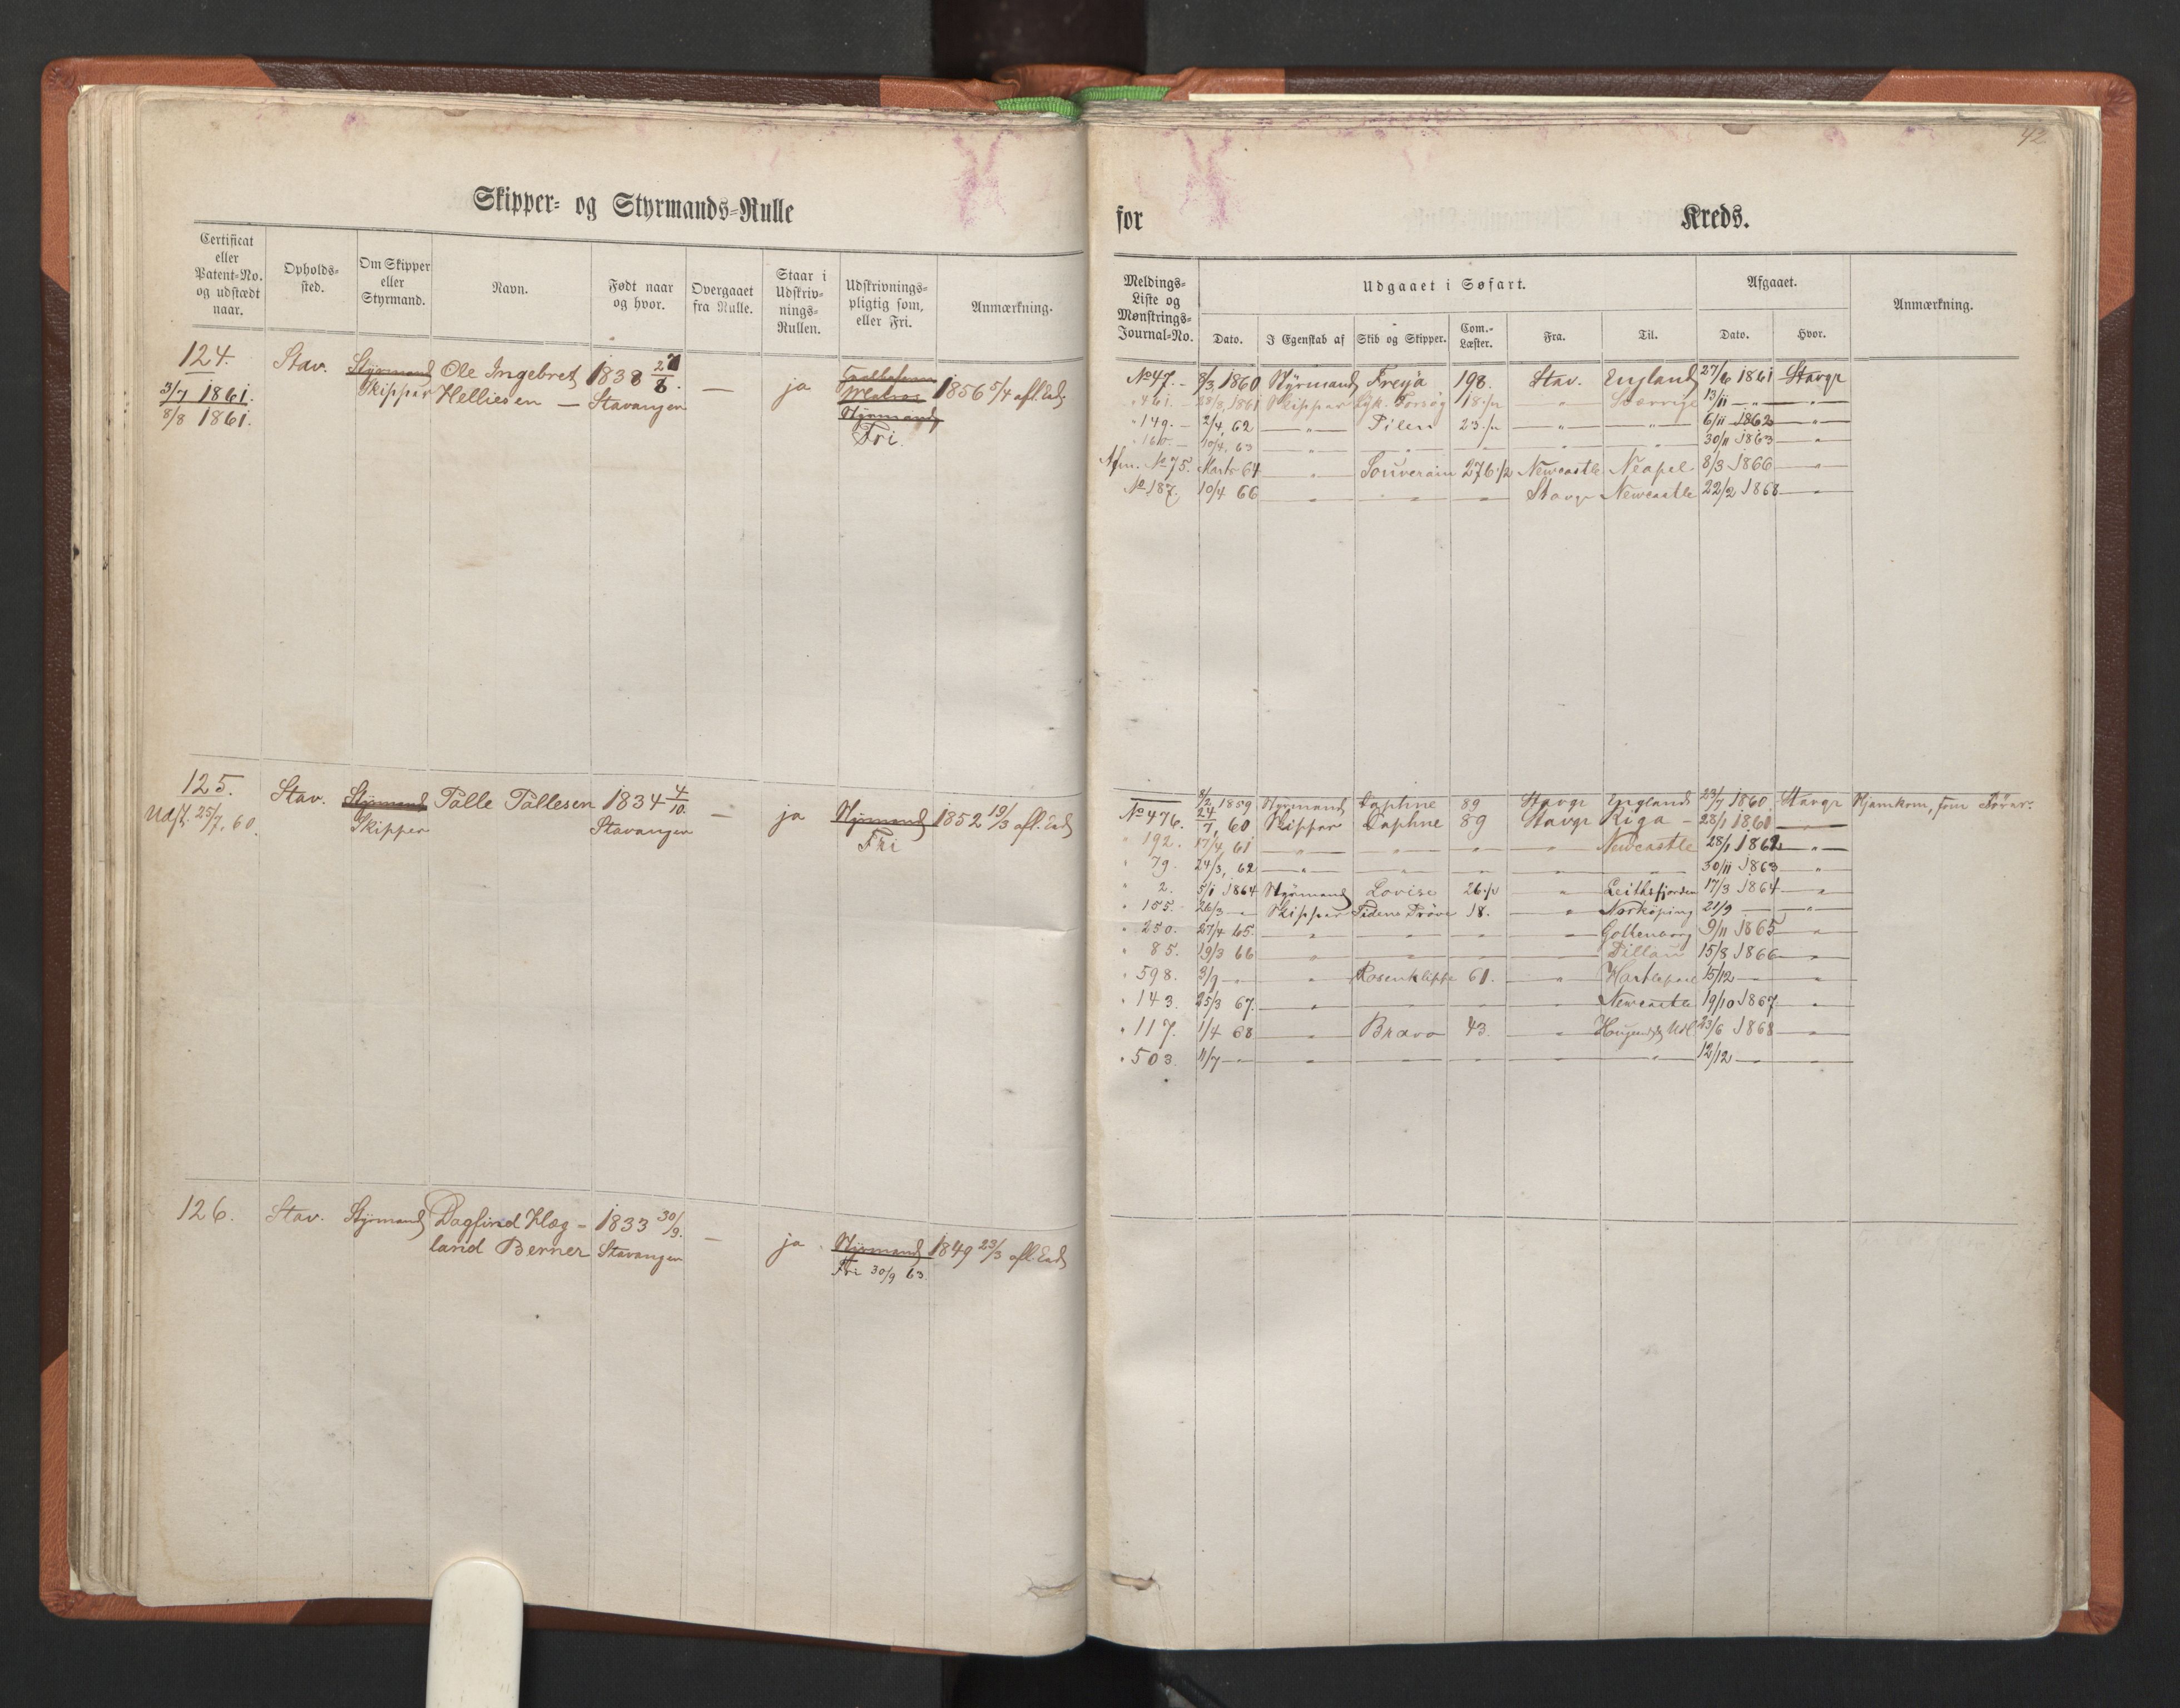 42
Skipper- og Styrmands-Rulle
for Kreds.
Certificat eller Patent-No. og udstædt naar.
Opholds-sted.
Om Skipper eller Styrmand.
Navn.
Født naar og hvor.
Overgaaet fra Rulle.
Staar i Udskriv-nings-Rullen.
Udskrivnings-pligtig som, eller Fri.
Anmærkning.
Meldings-Liste og Mønstrings-Journal-No.
Udgaaet i Søfart.
Dato.
I Egenskab af
Skib og Skipper.
Com.-Læster.
Fra.
Til.
Afgaaet.
Dato.
Hvor.
Anmærkning.
124. Stav. Styrmand Ole Ingebret 1838 27/8. — ja Matros 1856 5/4 afl. Ed,
3/7 1861. Skipper Helliesen — Stavanger Styrmand
8/8 1861. Fri.
No 47. - 8/3 1860 Styrmand Freya 198. Stav. England 27/6 1861 Stavgr
" 461. - 28/8, 1861 Skipper Lyk. Forsøg 18 1/2 — " — Sverrige 13/11 — " — "
" 149. - 2/4, 62 — " — Pilen 23 1/2 — " — " — 6/11 1862 — "
" 160. - 10/4, 63 — " — " — " — " — " 30/11 1863 — "
Afm. No 75. Marts 64 — " — Souverain 276 1/2 Newcastle Neapel 8/3 1866 — "
No 187. 10/4 66 — " — " — " — Stavgr Newcastle 22/2 1868 — "
125. Stav. Styrmand Tølle Tallesen 1834 4/10. — ja Styrmand 1852 19/3 afl. Ed
Udst. 25/7, 60. Skipper Stavanger Fri
8/2 1859 Styrmand Daphne 89 Stavgr England 23/7 1860 Stavgr Hjemkom, som
No 476. 24/7, 60 Skipper Daphne 89 Stavgr Riga - 28/1 1861 —
" 192. 17/4 61 — " — " — " — " — Newcastle 28/1 1862 — "
" 79. 24/3, 62 — " — " — " — " — " 30/11 1863 — "
" 2. 5/1 1864 Styrmand Lovise 26 1/2 " Leithsfjorden 17/3 1864 — "
" 155. 26/3 — " Skipper Tidens Prøve 18. — " Norköping 21/9 — "
" 250. 27/4 65. — " — " — " — " Gottenborg 9/11 1865 — "
" 85. 19/3 66 — " — " — " — Pillau 15/8 1866 — "
" 598. 3/9 — " — " Rosenklippe 61. — " Hartlepool 15/12 — "
" 143. 25/3 67. — " — " — " — " Newcastle 19/10 1867 — "
" 117. 1/4 68 — " Bravo 43. " 23/6 1868 — "
" 503. 11/7 — " — " — " — " — " 12/12 — "
126. Stav. Styrmand Dagfind Klæg- 1833 30/9. — ja. Styrmand 1849 23/3 afl. Ed
land Berner Stavanger Fri 30/9 63.